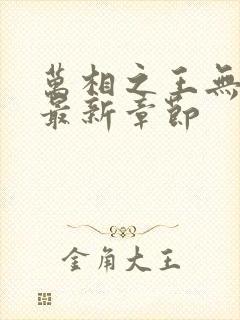 萬相之王無
最新章節
金角大王